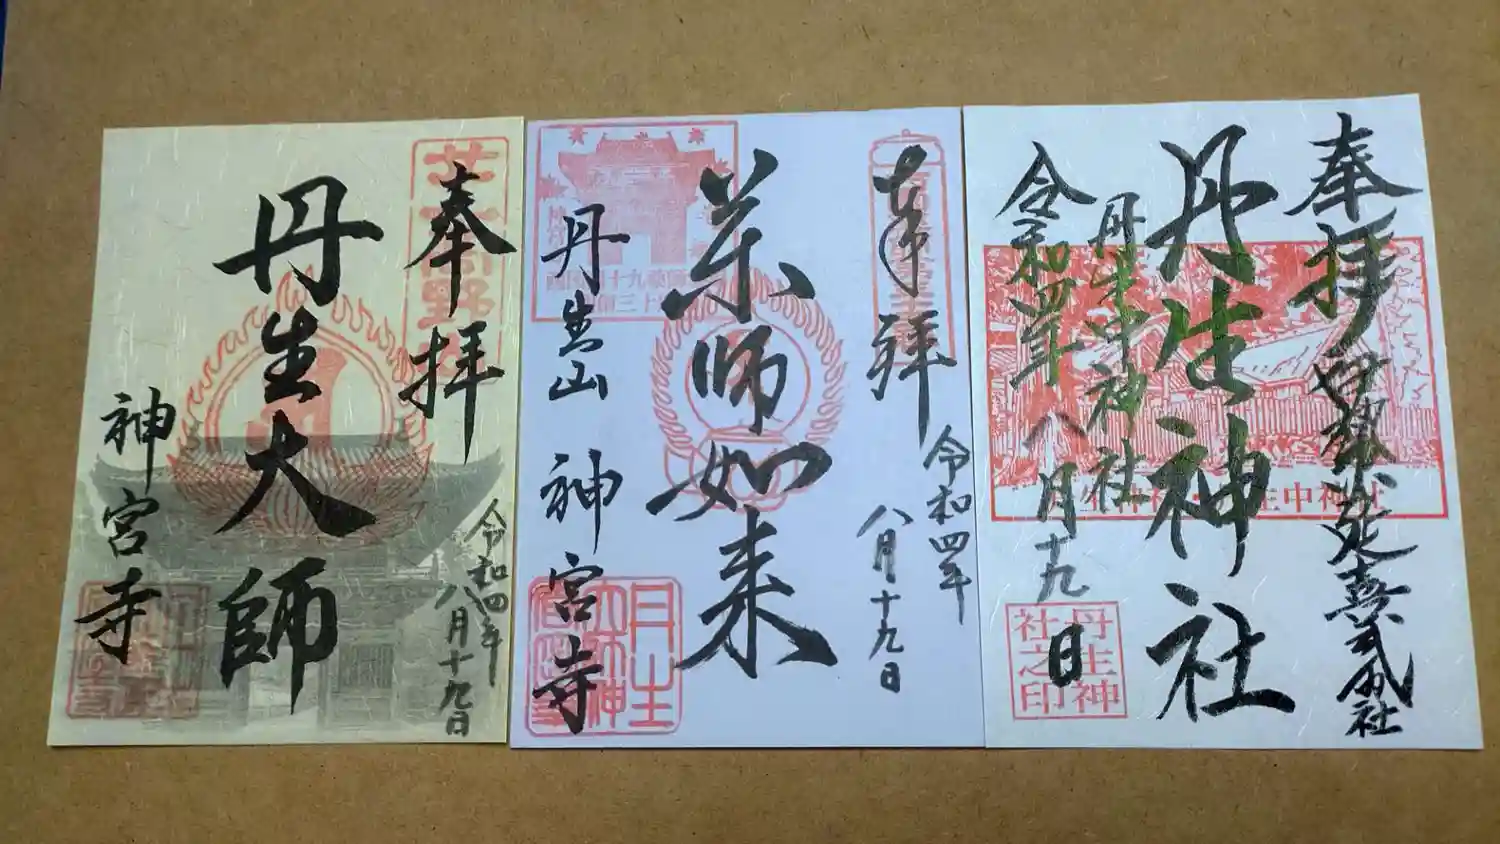 奉拝
丹生大師
神宮寺
令和四年
八月十九日
奉拝
薬師如来
丹生山 神宮寺
令和四年
八月十九日
奉拝
伊勢國延喜式内社
丹生神社
丹生中神社
令和四年八月十九日
丹生神
社之印